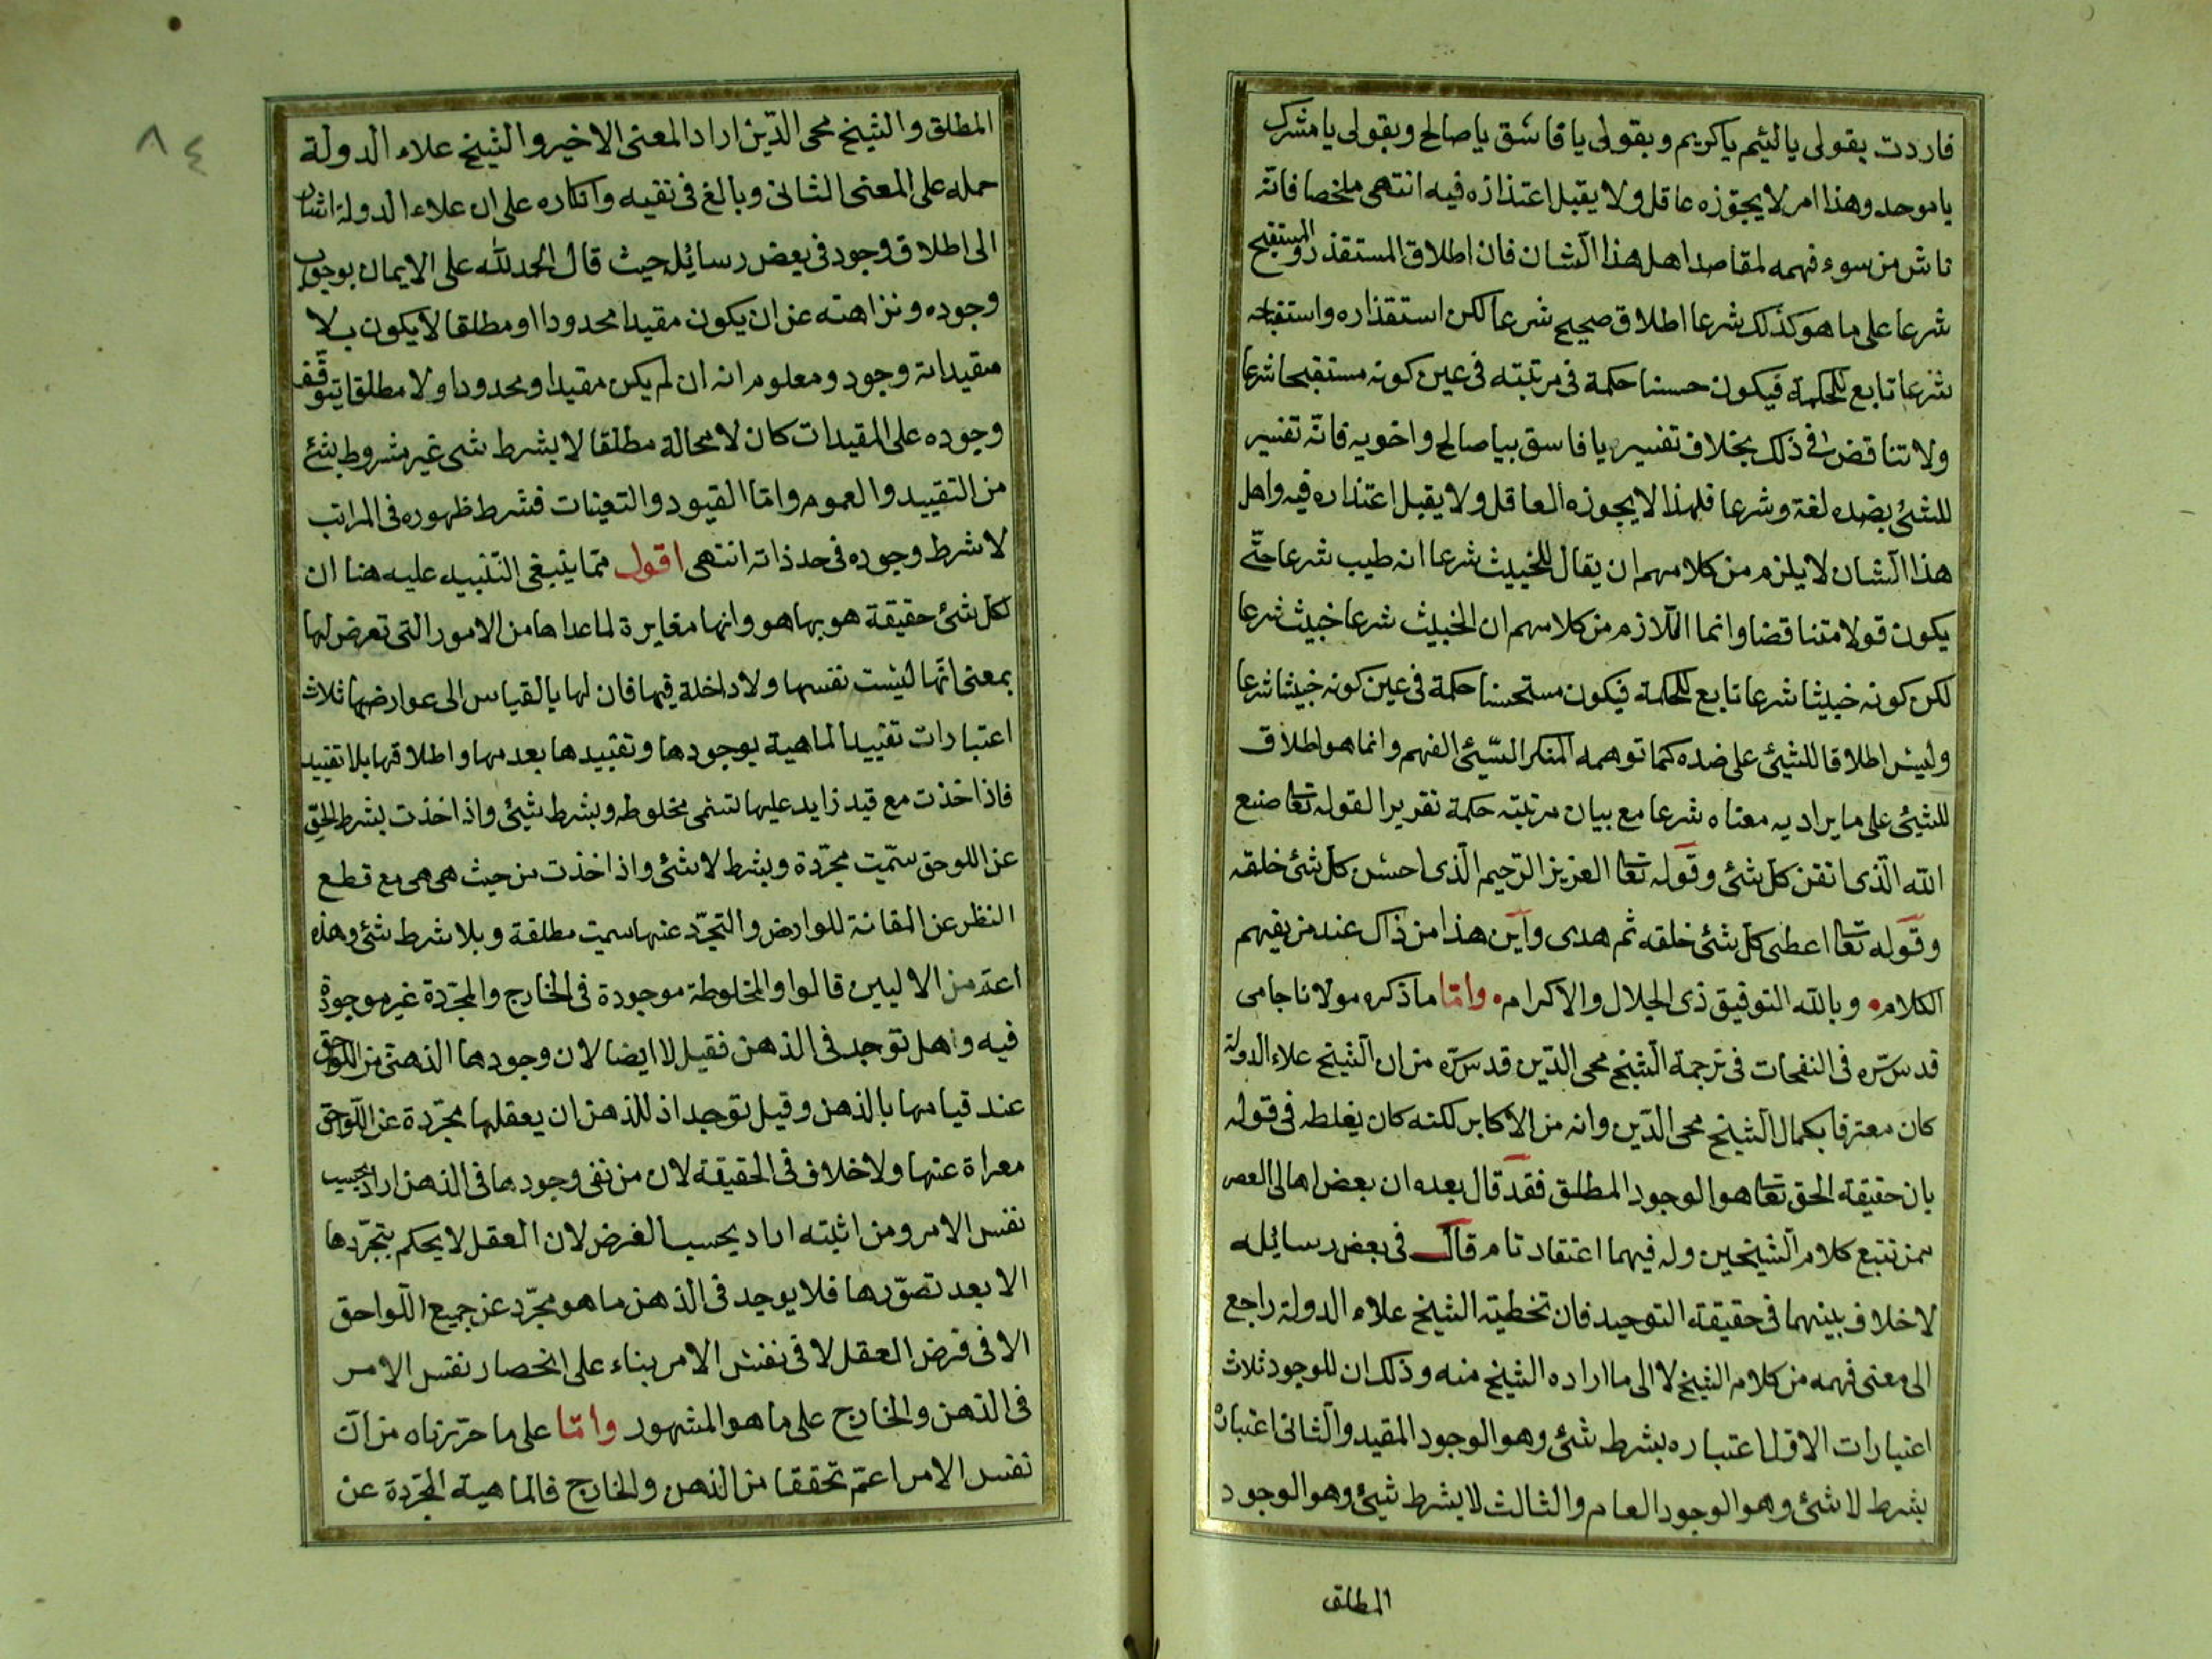 فاردت بقولى يا لئيم يا كريم و بقولى يا فاسق يا صالح وبقولى يا مشرك
يا موحد وهذا امر لا يجوّزه عاقل ولا يقبل اعتذاره فيه انتهى ملخصا فانّه
ناش من سوء فهمه لمقاصد اهل هذا الشان فان اطلاق المستقذر والمستقبح
شرعا على ما هو كذلك شرعا اطلاق صحيح شرعا لكن استقذاره واستقباحه
شرعا تابع للحكمة فيكون حسنا حكمة فى مرتبته فى عين كونه مستقبحا شرعا
ولا تناقض فى ذلك بخلاف تفسير يا فاسق بيا صالح واخويه فانّه تفسير
للشئ بضده لغة وشرعا فلهذا لا يجوزه العاقل ولا يقبل اعتذاره فيه واهل
هذا الشان لا يلزم من كلامهم ان يقال للخبيث شرعا انه طيب شرعا حتّى
يكون قولا متناقضا وانما اللازم من كلامهم ان الخبيث شرعا خبيث شرعا
لكن كونه خبيثا شرعا تابع للحكمة فيكون مستحسنا حكمة فى عين كونه خبيثا شرعا
وليس اطلاقا للشئ على ضده كما توهمه المنكر السّيئ الفهم وانما هو اطلاق
للشئ على ما يراد به معناه شرعا مع بيان مرتبته حكمة تقريرا لقوله تعا صنع
الله الّذى اتقن كل شئ وقوله تعا العزيز الرّحيم الّذى احسن كل شئ خلقه
وقوله تعا اعطى كل شئ خلقه ثم هدى واين هذا من ذاك عند من يفهم
الكلام وبالله التوفيق ذى الجلال والاكرام وامّا ما ذكره مولانا جامى
قدس سّره فى النفحات فى ترجمة الشيخ محى الدّين قدس سّره من ان الشيخ علاء الدولة
كان معترفا بكمال الشيخ محى الدّين وانه من الاكابر لكنه كان يغلطه فى قوله
بان حقيقة الحق تعا هو الوجود المطلق فقد قال بعده ان بعض اهالى العصر
ممن تتبع كلام الشيخين وله فيهما اعتقاد تام قال فى بعض رسائله
لا خلاف بينهما فى حقيقة التوحيد فان تخطية الشيخ علاء الدولة راجع
الى معنى فهمه من كلام الشيخ لا الى ما اراده الشيخ منه وذلك ان للوجود ثلاث
اعتبارات الاول اعتباره بشرط شئ وهو الوجود المقيد والثانى اعتباره
بشرط لا شئ وهو الوجود العام والثالث لا بشرط شئ وهو الوجود
المطلق
٨٤
المطلق والشيخ محى الدّين اراد المعنى الاخير والشيخ علاء الدولة
حمله على المعنى الثانى وبالغ فى نفيه وانكاره على ان علاء الدولة اشار
الى اطلاق وجود فى بعض رسائله حيث قال الحمد لله على الايمان بوجوب
وجوده ونزاهته عن ان يكون مقيدا محدودا او مطلقا لا يكون بلا
مقيداته وجود ومعلوم انه ان لم يكن مقيدا ومحدودا ولا مطلقا يتوقّف
وجوده على المقيدات كان لا محالة مطلقا لا بشرط شى غير مشروط بشئ
من التقييد والعموم وامّا القيود والتعينات فشرط ظهوره فى المراتب
لا شرط وجوده فى حد ذاته انتهى اقول ممّا ينبغى التنبيه عليه هنا ان
لكل شئ حقيقة هو بها هو وانها مغايرة لما عداها من الامور التى تعرض لها
بمعنى انّها ليست نفسها ولا داخلة فيها فان لها بالقياس الى عوارضها ثلاث
اعتبارات تقييد الماهية بوجودها وتقييدها بعدمها واطلاقها بلا تقييد
فاذا اخذت مع قيد زايد عليها تسمى مخلوطه وبشرط شئ واذا اخذت بشرط الخلق
عن اللوحق سمّيت مجرّدة وبشرط لا شئ واذا اخذت من حيث هى هى مع قطع
النظر عن المقانة للوارض والتجرّد عنها سمت مطلقة وبلا شرط شئ وهذه
اعم من الاليين قالوا والمخلوطة موجودة فى الخارج والمجرّدة غير موجودة
فيه وهل توجد فى الذهن فقيل لا ايضا لان وجودها الذهنى من اللواحق
عند قيامها بالذهن وقيل توجد اذ للذهن ان يعقلها مجرّدة عن اللّواحق
معراة عنها ولا خلاف فى الحقيقة لان من نفى وجودها فى الذهن اراد بحسب
نفس الامر ومن اثبته اراد بحسب الفرض لان العقل لا يحكم بتجرّدها
الا بعد تصوّرها فلا يوجد فى الذهن ما هو مجرّد عن جميع اللّواحق
الا فى فرض العقل لا فى نفس الامر بناء على انحصار نفس الامر
فى الذهن والخارج على ما هو المشهور وامّا على ما حرّرناه من انّ
نفس الامر اعمّ تحققا من الذهن والخارج فالماهية المجرّدة عن